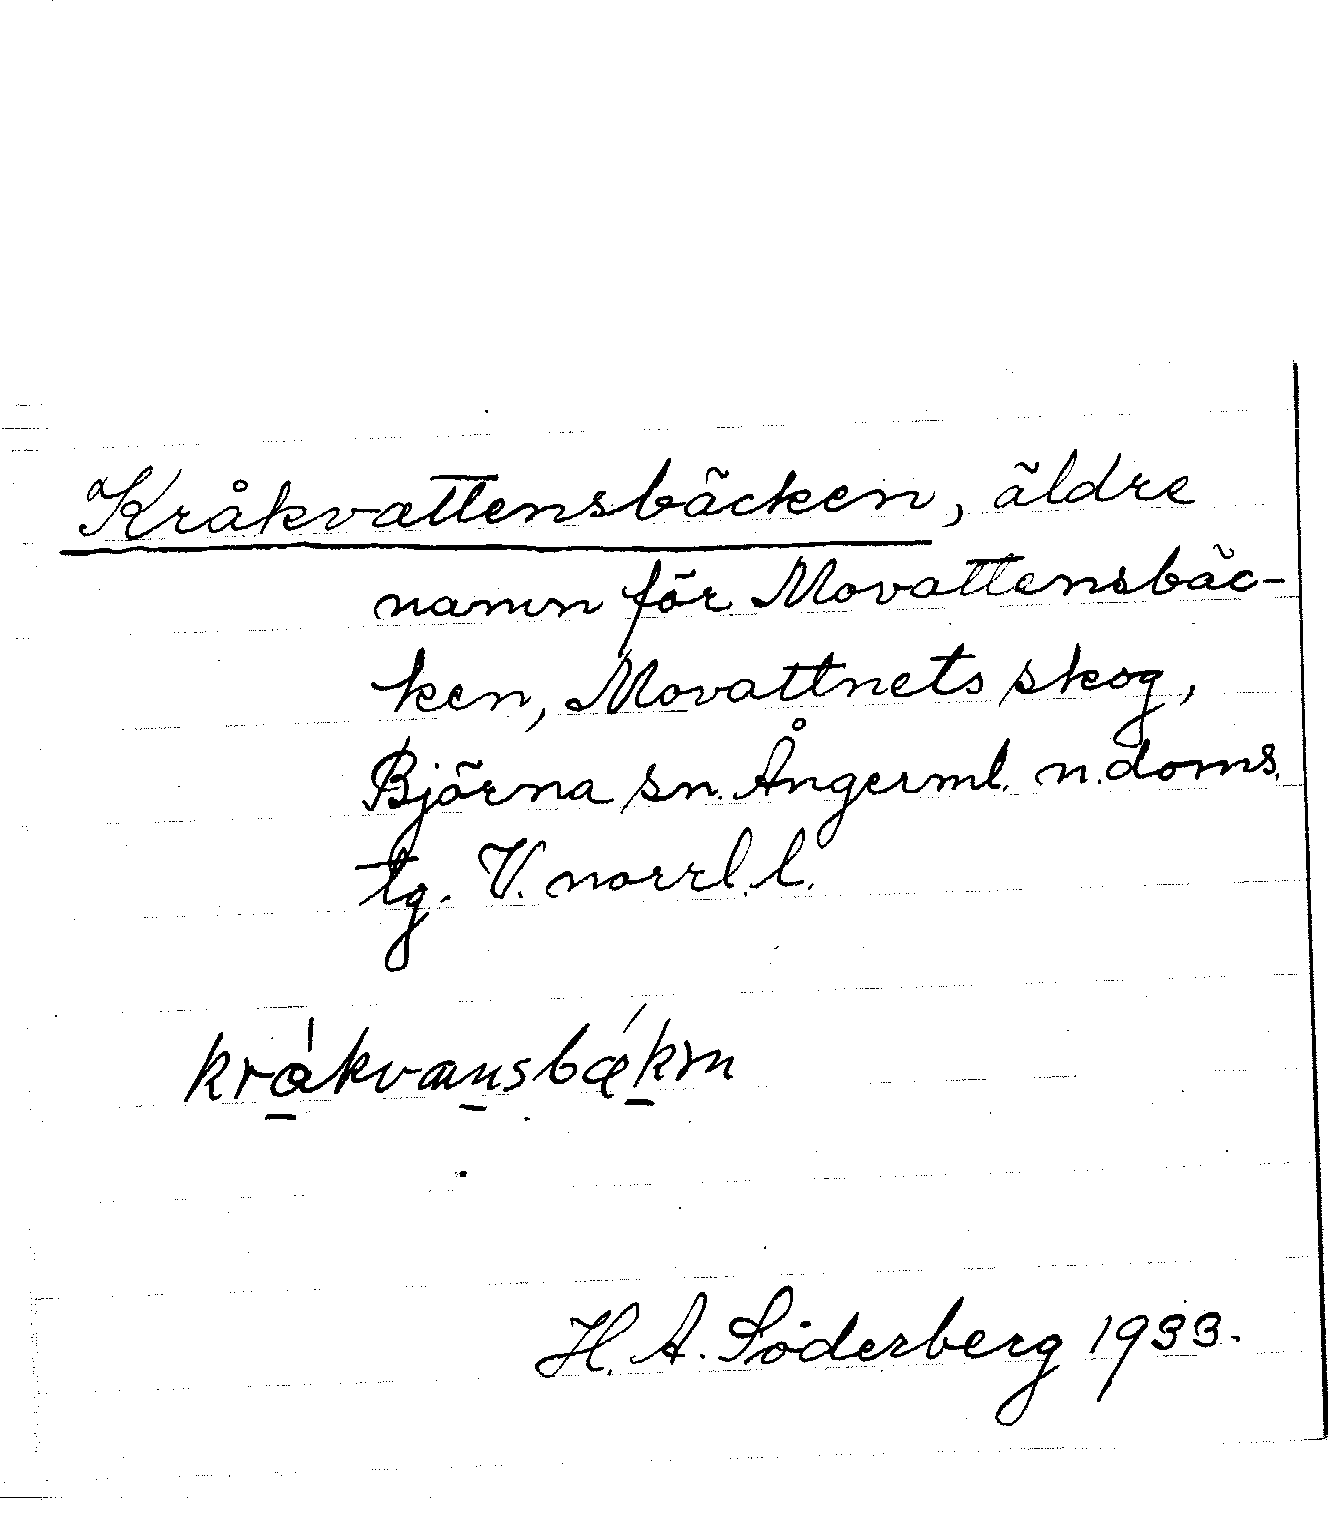 Kråkvattensbäcken, äldre
namn för Movattensbäc-
ken, Movattnets skog,
Björna sn. Ångerml. n. doms.
tg. V. norrl. l.
H. A. Söderberg 1933.